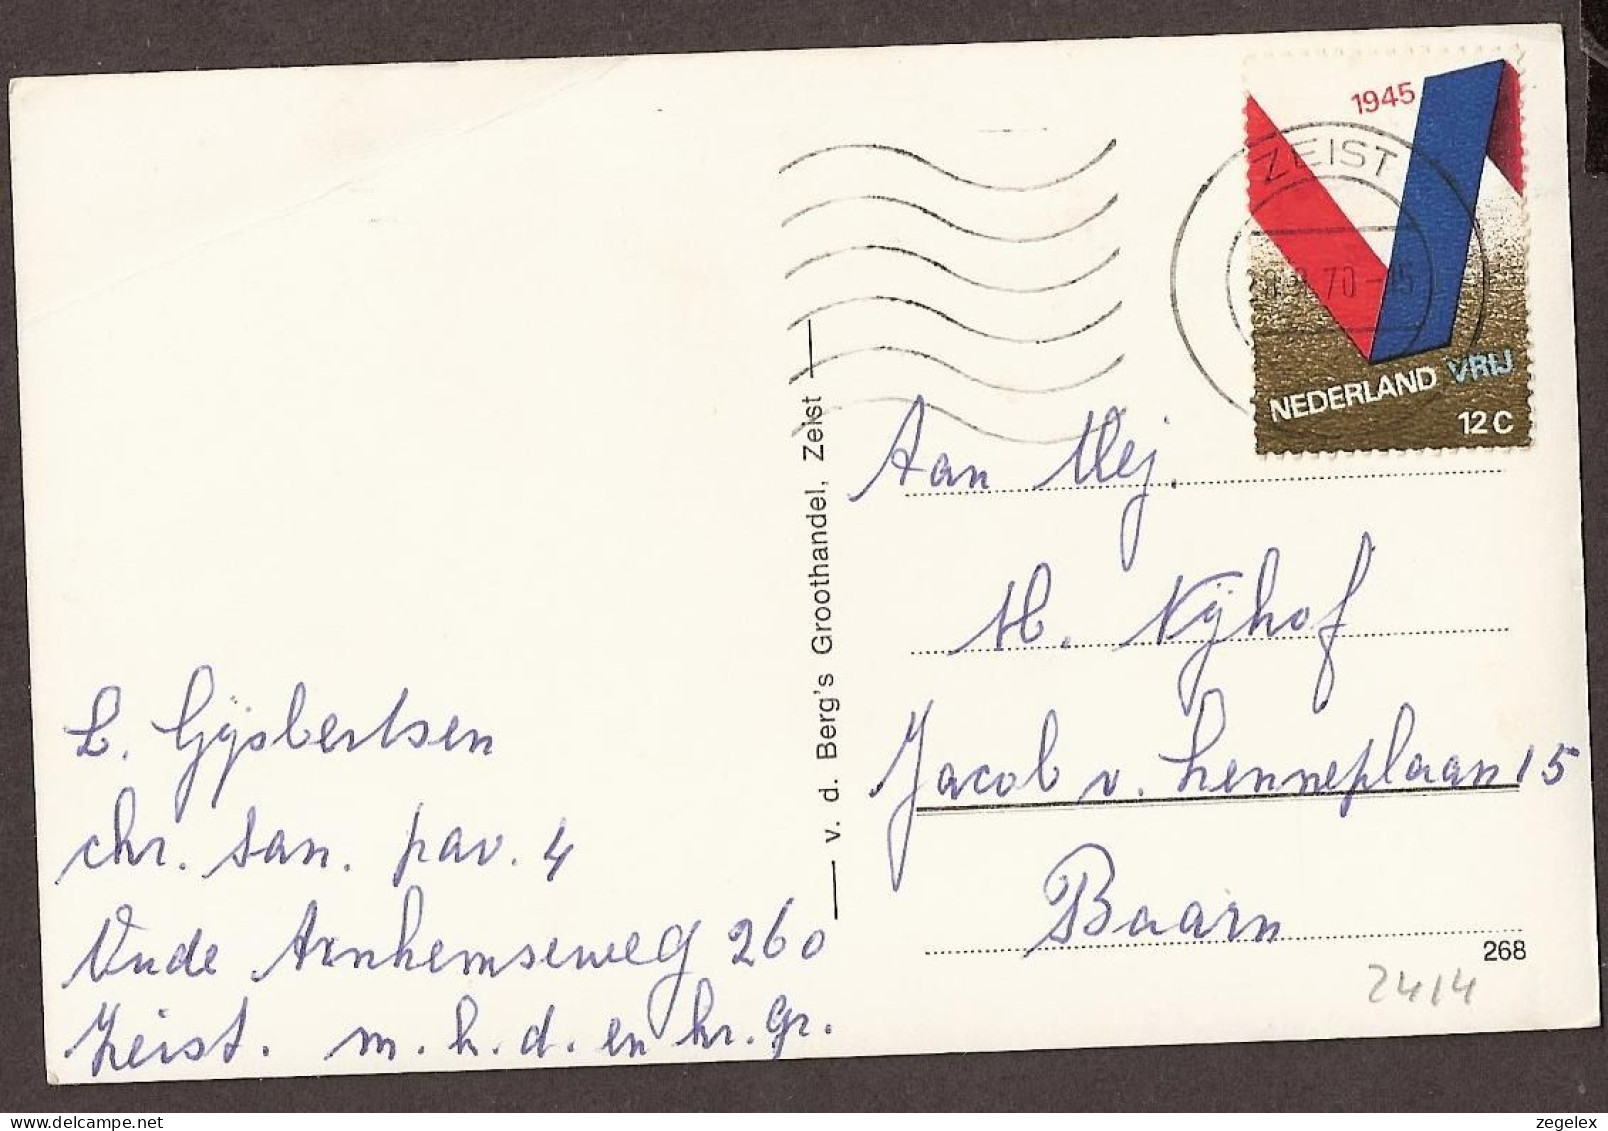 1945
ZEIST
70-
NEDERLAND VRIJ
12 C
Aan Mej.
H. Nijhof
Jacob v. Lenneplaan 15
Baarn
268
2414
v. d. Berg's Groothandel, Zeist
L. Gijsbertsen
chr. san. pav. 4
Oude Arnhemseweg 260
Zeist. m. h. d. en hr. gr.
zegelex